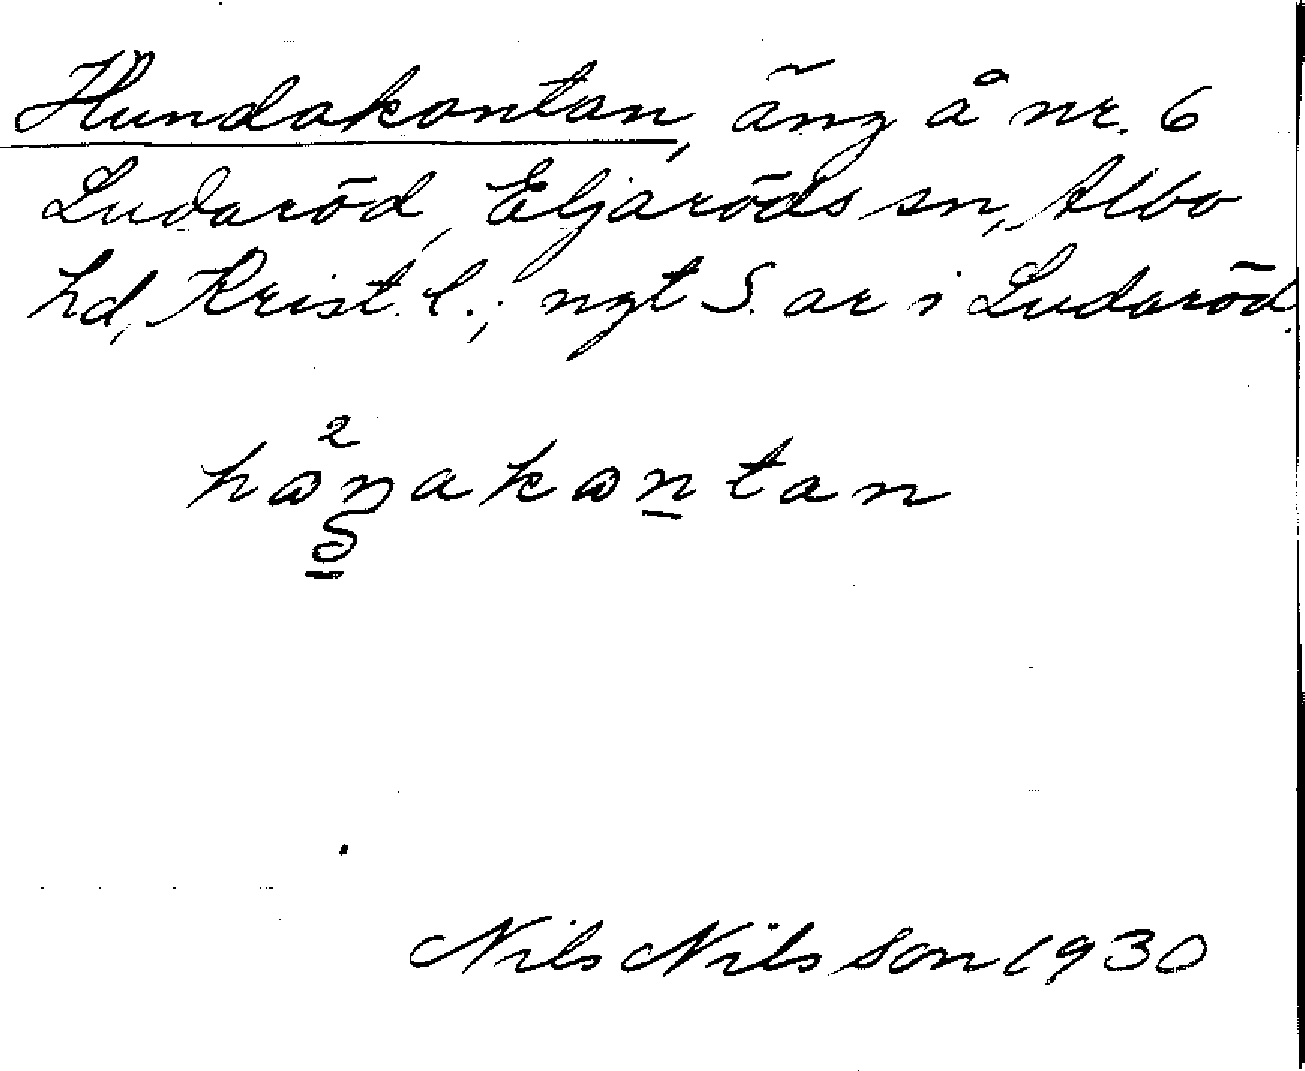 Hundakontan, äng å nr. 6
Ludaröd, Eljaröds sn, Albo
hd, Krist. l.; ngt S. ar i Ludaröd.
2
Nils Nilsson 1930